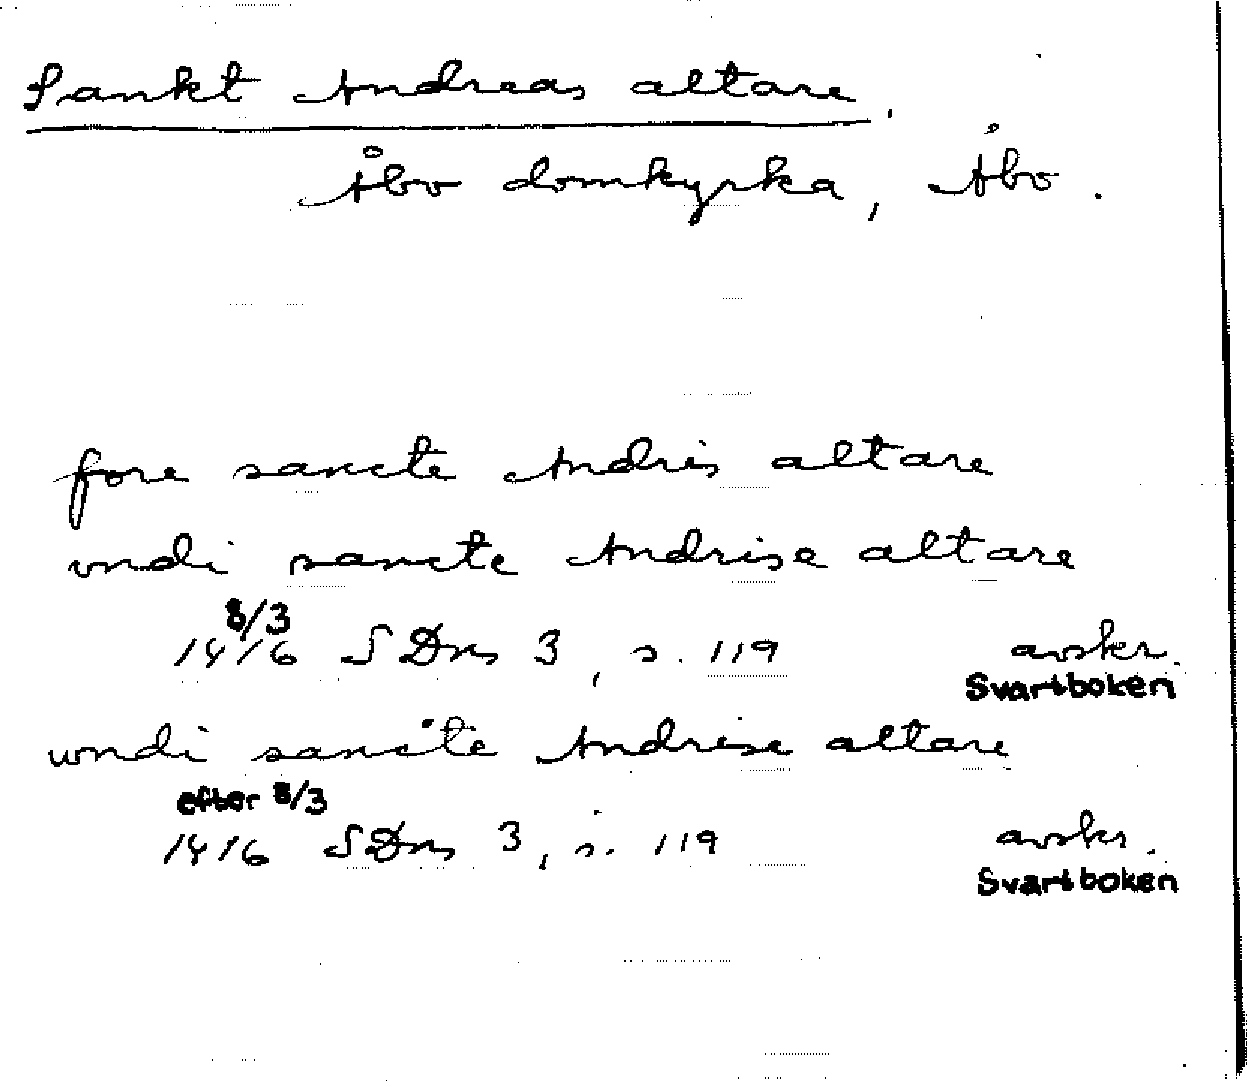 Sankt Andreas altare,
Åbo domkyrka, Åbo.
fore sancte Andris altare
vndi sancte Andrise altare
8/3
1416 SDns 3, s. 119 avskr.
Svartboken
wndi sancte Andrise altare
efter 8/3
1416 SDns 3, s. 119 avskr.
Svartboken